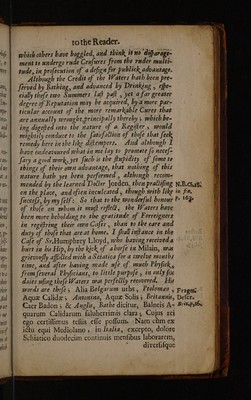 to the Reader.
which others have boggled, and think it no disparage-
ment to undergo rude Censures from the ruder multi-
tude, in prosecution of a design for publick advantage.
Although the Credit of the Waters hath been pre-
served by Bathing, and advanced by Drinking, espe-
cially these two Summers last past, yet a far greater
degree of Reputation may be acquired, by a more par-
ticular account of the more remarkable Cures that
are annually wrought, principally thereby, which be-
ing digested into the nature of a Register, would
mightily conduce to the satisfaction of those that seek
remedy here in the like distempers. And although I
have endeavoured what in me lay to promote so neces-
sary a good work, yet such is the stupidity of some to
things of their own advantage, that nothing of this
nature hath yet been performed, although recom-
mended by the learned Doctor Jorden, then practising
on the place, and often inculcated, though with less
success, by my self: So that to the wonderful honour
of those on whom it must reflect, the Waters have
been more beholding to the gratitude of Foreigners
in registring their own Cases, than to the care and
duty of those that are at home. I shall instance in the
Case of Sr. Humphrey Lloyd, who having received a
hurt in his Hip, by the kick of a horse in Milain, was
grievously afflicted with a Sciatica for a twelve months
time, and after having made use of much Physick,
from several Physicians, to little purpose, in only six
daies using these Waters was perfectly recovered. His
words are these, Alia Belgarum urbs, Ptolomæo
Aquæ Calidæ, Antonino, Aquæ Solis; Britannis,
Caer Baden, & Anglis, Bathe dicitur, Balneis A-
quarum Calidarum saluberrimis clara, Cujus rei
ego certissimus testis esse possum. Nam cùm ex
ictu equi Mediolano, in Italia, excepto, dolore
Schiatico duodecim continuis mensibus laborarem,
diversisque
Fragm.
Descr.